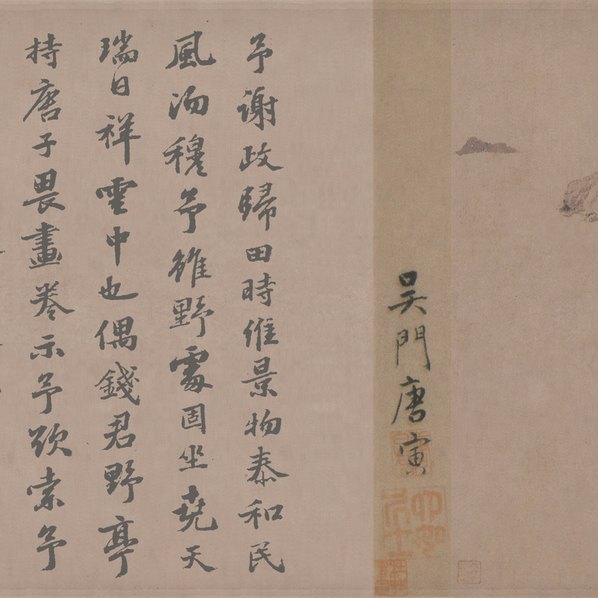 吳門唐寅
予謝政歸田時維景物泰和民
風沕穆予雖野處固坐堯天
瑞日祥雲中也偶錢君野亭
持唐子畏畫卷示予跋索予